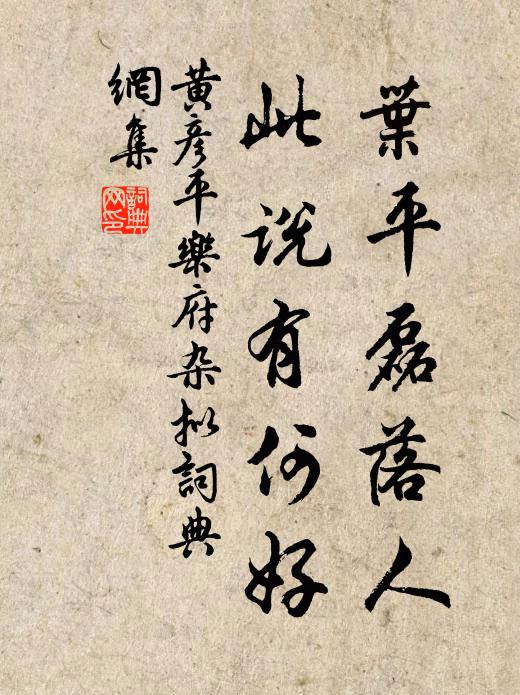 葉平磊落人
此說有何好
黃彦平樂府杂拟詞典
網集
詞典網印